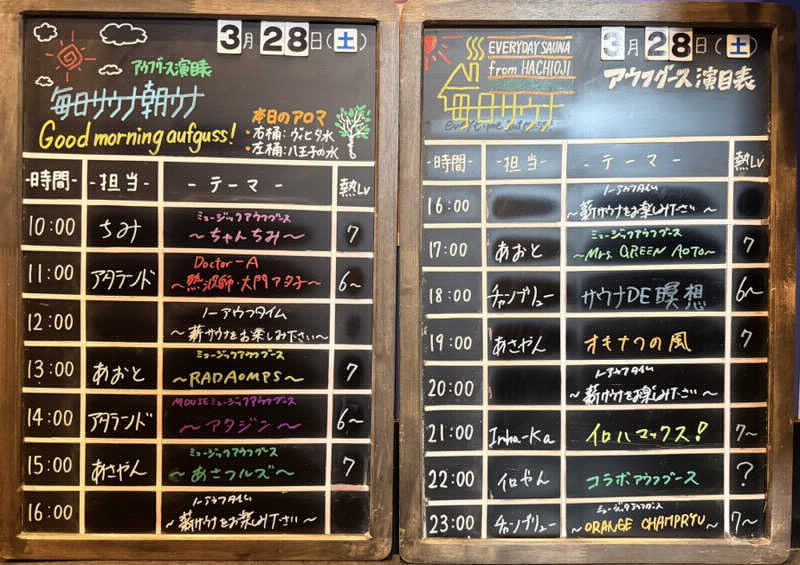 3月28日(土)
アウフグース演目表
毎日サウナ朝ウナ
Good morning aufguss!
本日のアロマ
・右桶:ヴィヒタ水
・左桶:八王子の水
-時間- -担当- -テーマ- 熱Lv
10:00 ちみ ミュージックアウフグース
～ちゃんちみ～ 7
11:00 アタランド Doctor-A
～熱波師・大門アタ子～ 6～
12:00 ノーアウフタイム
～薪サウナをお楽しみ下さい～
13:00 あおと ミュージックアウフグース
～RADAOMPS～ 7
14:00 アタランド MOUSEミュージックアウフグース
～アタジン～ 6～
15:00 あさやん ミュージックアウフグース
～あさフルズ～ 7
16:00 ノーアウフタイム
～薪サウナをお楽しみ下さい～
3月28日(土)
EVERYDAY SAUNA
from HACHIOJI
毎日サウナ
アウフグース演目表
-時間- -担当- -テーマ- 熱Lv
16:00 ノーアウフタイム
～薪サウナをお楽しみ下さい～
17:00 あおと ミュージックアウフグース
～Mrs. GREEN AOTO～ 7
18:00 チャンプリュー サウナDE瞑想 6～
19:00 あさやん オキナワの風 7
20:00 ノーアウフタイム
～薪サウナをお楽しみ下さい～
21:00 Iroha-Ka イロハマックス! 7～
22:00 イロやん コラボアウフグース ?
23:00 チャンプリュー ミュージックアウフグース
～ORANGE CHAMPRYU～ 7～